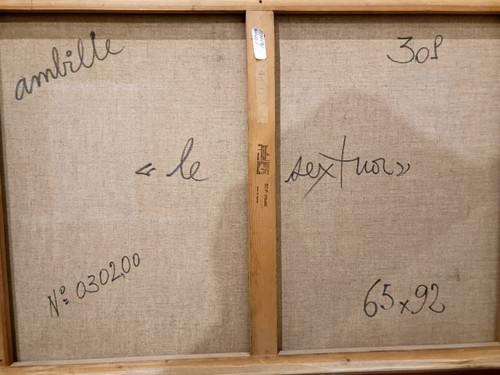 ambille
30F
« le sextuor »
N°: 030200
65x92